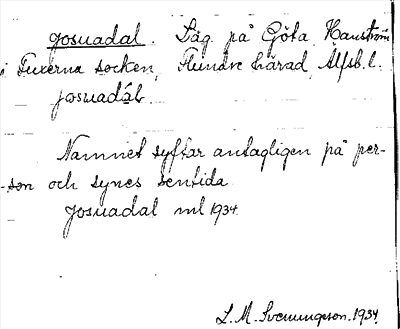 Josuadal. Låg. på Göta Hanström
i Fuxerna socken, Flundre härad, Älfsb. l.
josuadáɫ.
Namnet syftar antagligen på per-
-son och synes sentida
Josuadal ml 1934.
L. M. Svenungsson. 1934.